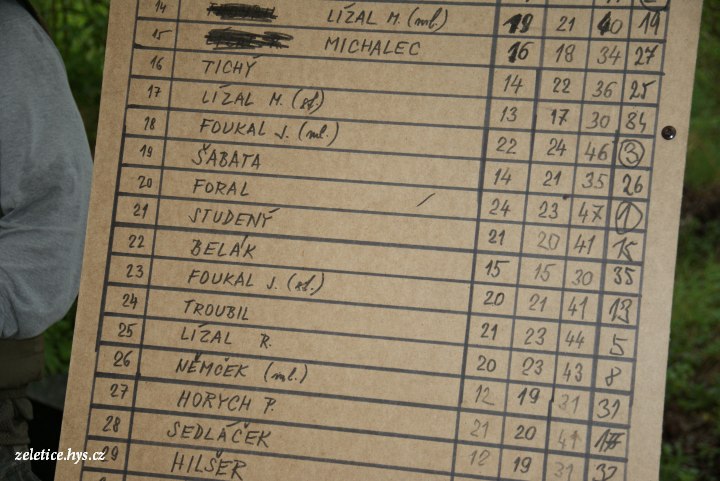 14 LÍZAL M. (ml.) 19 21 40 19
15 MICHALEC 16 18 34 27
16 TICHÝ 14 22 36 25
17 LÍZAL M. (st.) 13 17 30 34
18 FOUKAL J. (ml.) 22 24 46 3
19 ŠABATA 14 21 35 26
20 FORAL 24 23 47 1
21 STUDENÝ 21 20 41 15
22 BELÁK 15 15 30 35
23 FOUKAL J. (st.) 20 21 41 13
24 TROUBIL 21 23 44 5
25 LÍZAL R. 20 23 43 8
26 NĚMČEK (ml.) 12 19 31 31
27 HORYCH P. 21 20 41
28 SEDLÁČEK 12 19 31 32
29 HILŠER
zeletice.hys.cz